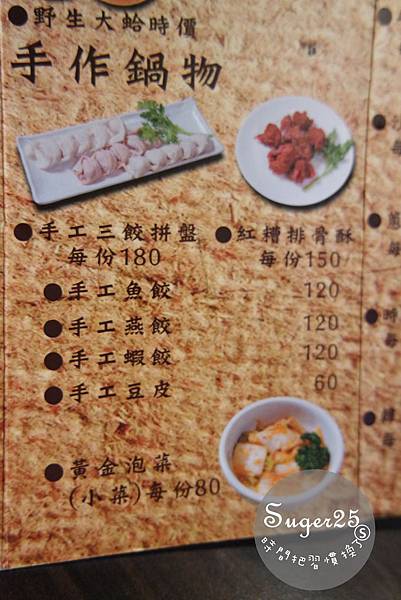 野生大蛤時價
手作鍋物
手工三餃拼盤
每份180
紅糟排骨酥
每份150
手工魚餃 120
手工燕餃 120
手工蝦餃 120
手工豆皮 60
黃金泡菜
(小菜)每份80
Suger25
時間把習慣換了